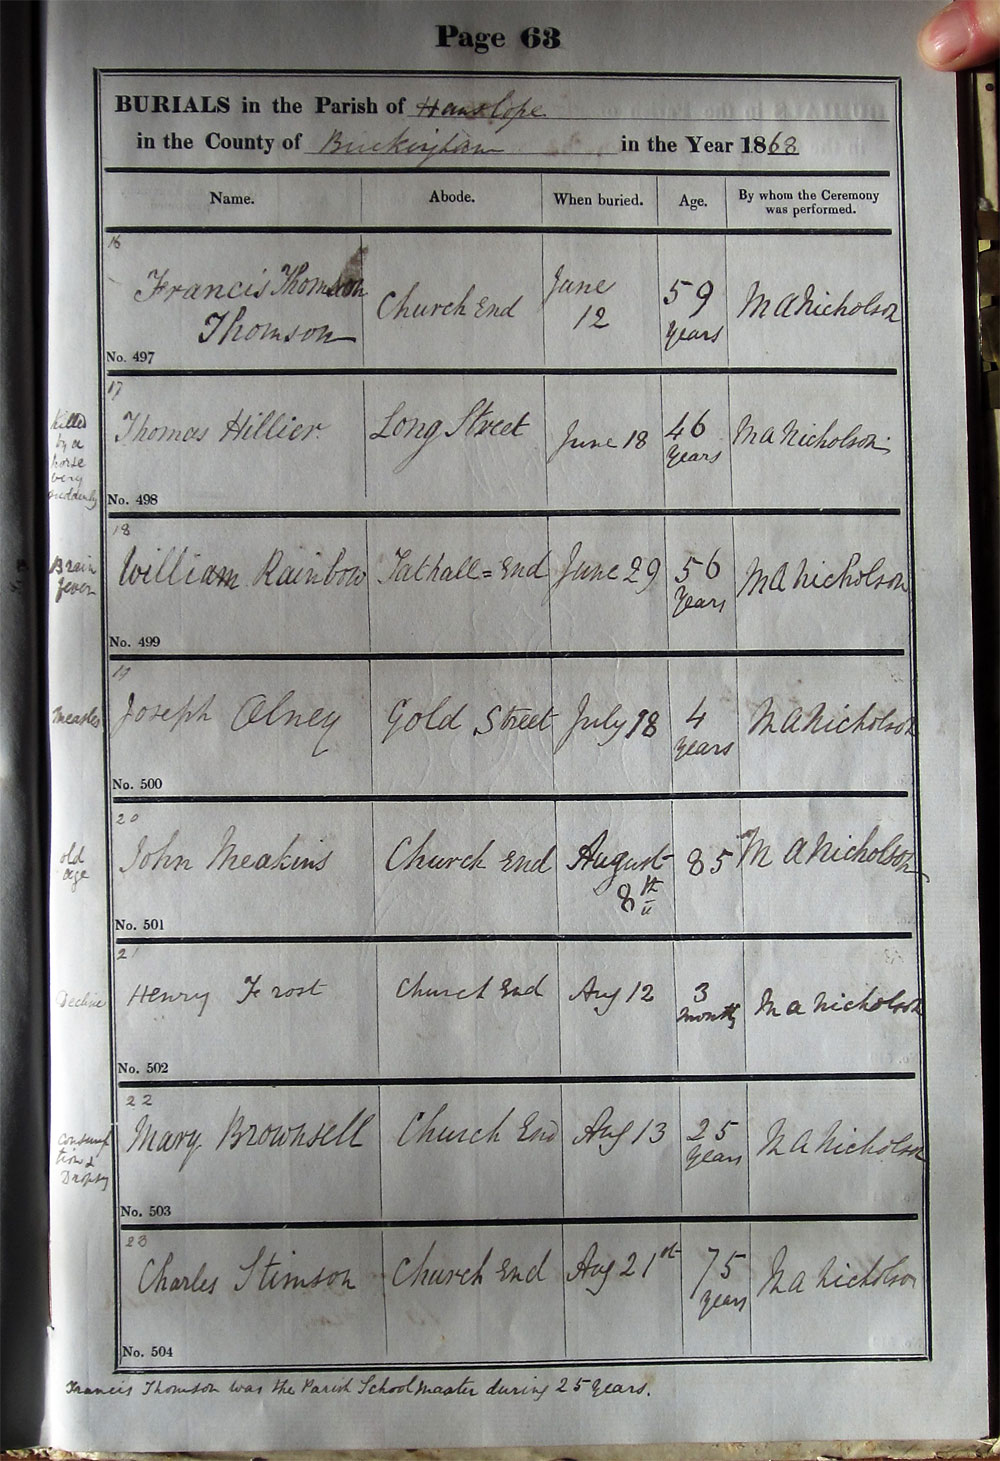 Page 63
BURIALS in the Parish of Hanslope
in the County of Buckingham in the Year 1868
Name. Abode. When buried. Age. By whom the Ceremony
was performed.
16
Francis Thomson
Thomson
Church End
June
12
59
years
M A Nicholson
No. 497
17
Killed
by a
horse
very
suddenly
Thomas Hillier
Long Street
June 18
46
years
M A Nicholson
No. 498
18
Brain
fever
William Rainbow
Tathall=End
June 29
56
years
M A Nicholson
No. 499
19
measles
Joseph Olney
Gold Street
July 18
4
years
M A Nicholson
No. 500
20
old
age
John Meakins
Church End
August
8th
85
M A Nicholson
No. 501
21
Decline
Henry Frost
Church End
Aug 12
3
months
M A Nicholson
No. 502
22
Consump
tion &
Dropsy
Mary Brownsell
Church End
Aug 13
25
years
M A Nicholson
No. 503
23
Charles Stimson
Church End
Aug 21st
75
years
M A Nicholson
No. 504
Francis Thomson was the Parish School master during 25 years.